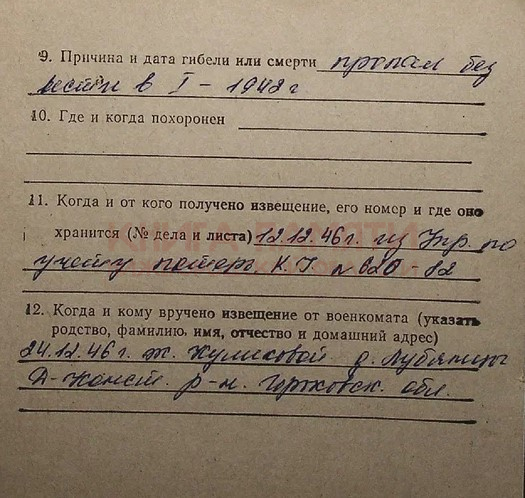 9. Причина и дата гибели или смерти пропал без
вести в I – 1942 г
10. Где и когда похоронен
11. Когда и от кого получено извещение, его номер и где оно
хранится (№ дела и листа) 12.12.46 г. из Упр. по
учету потерь К.
12. Когда и кому вручено извещение от военкомата (указать
родство, фамилию, имя, отчество и домашний адрес)
24.12.46 г. ж. д.
Д-Конст. р-н. Горьковск. обл.